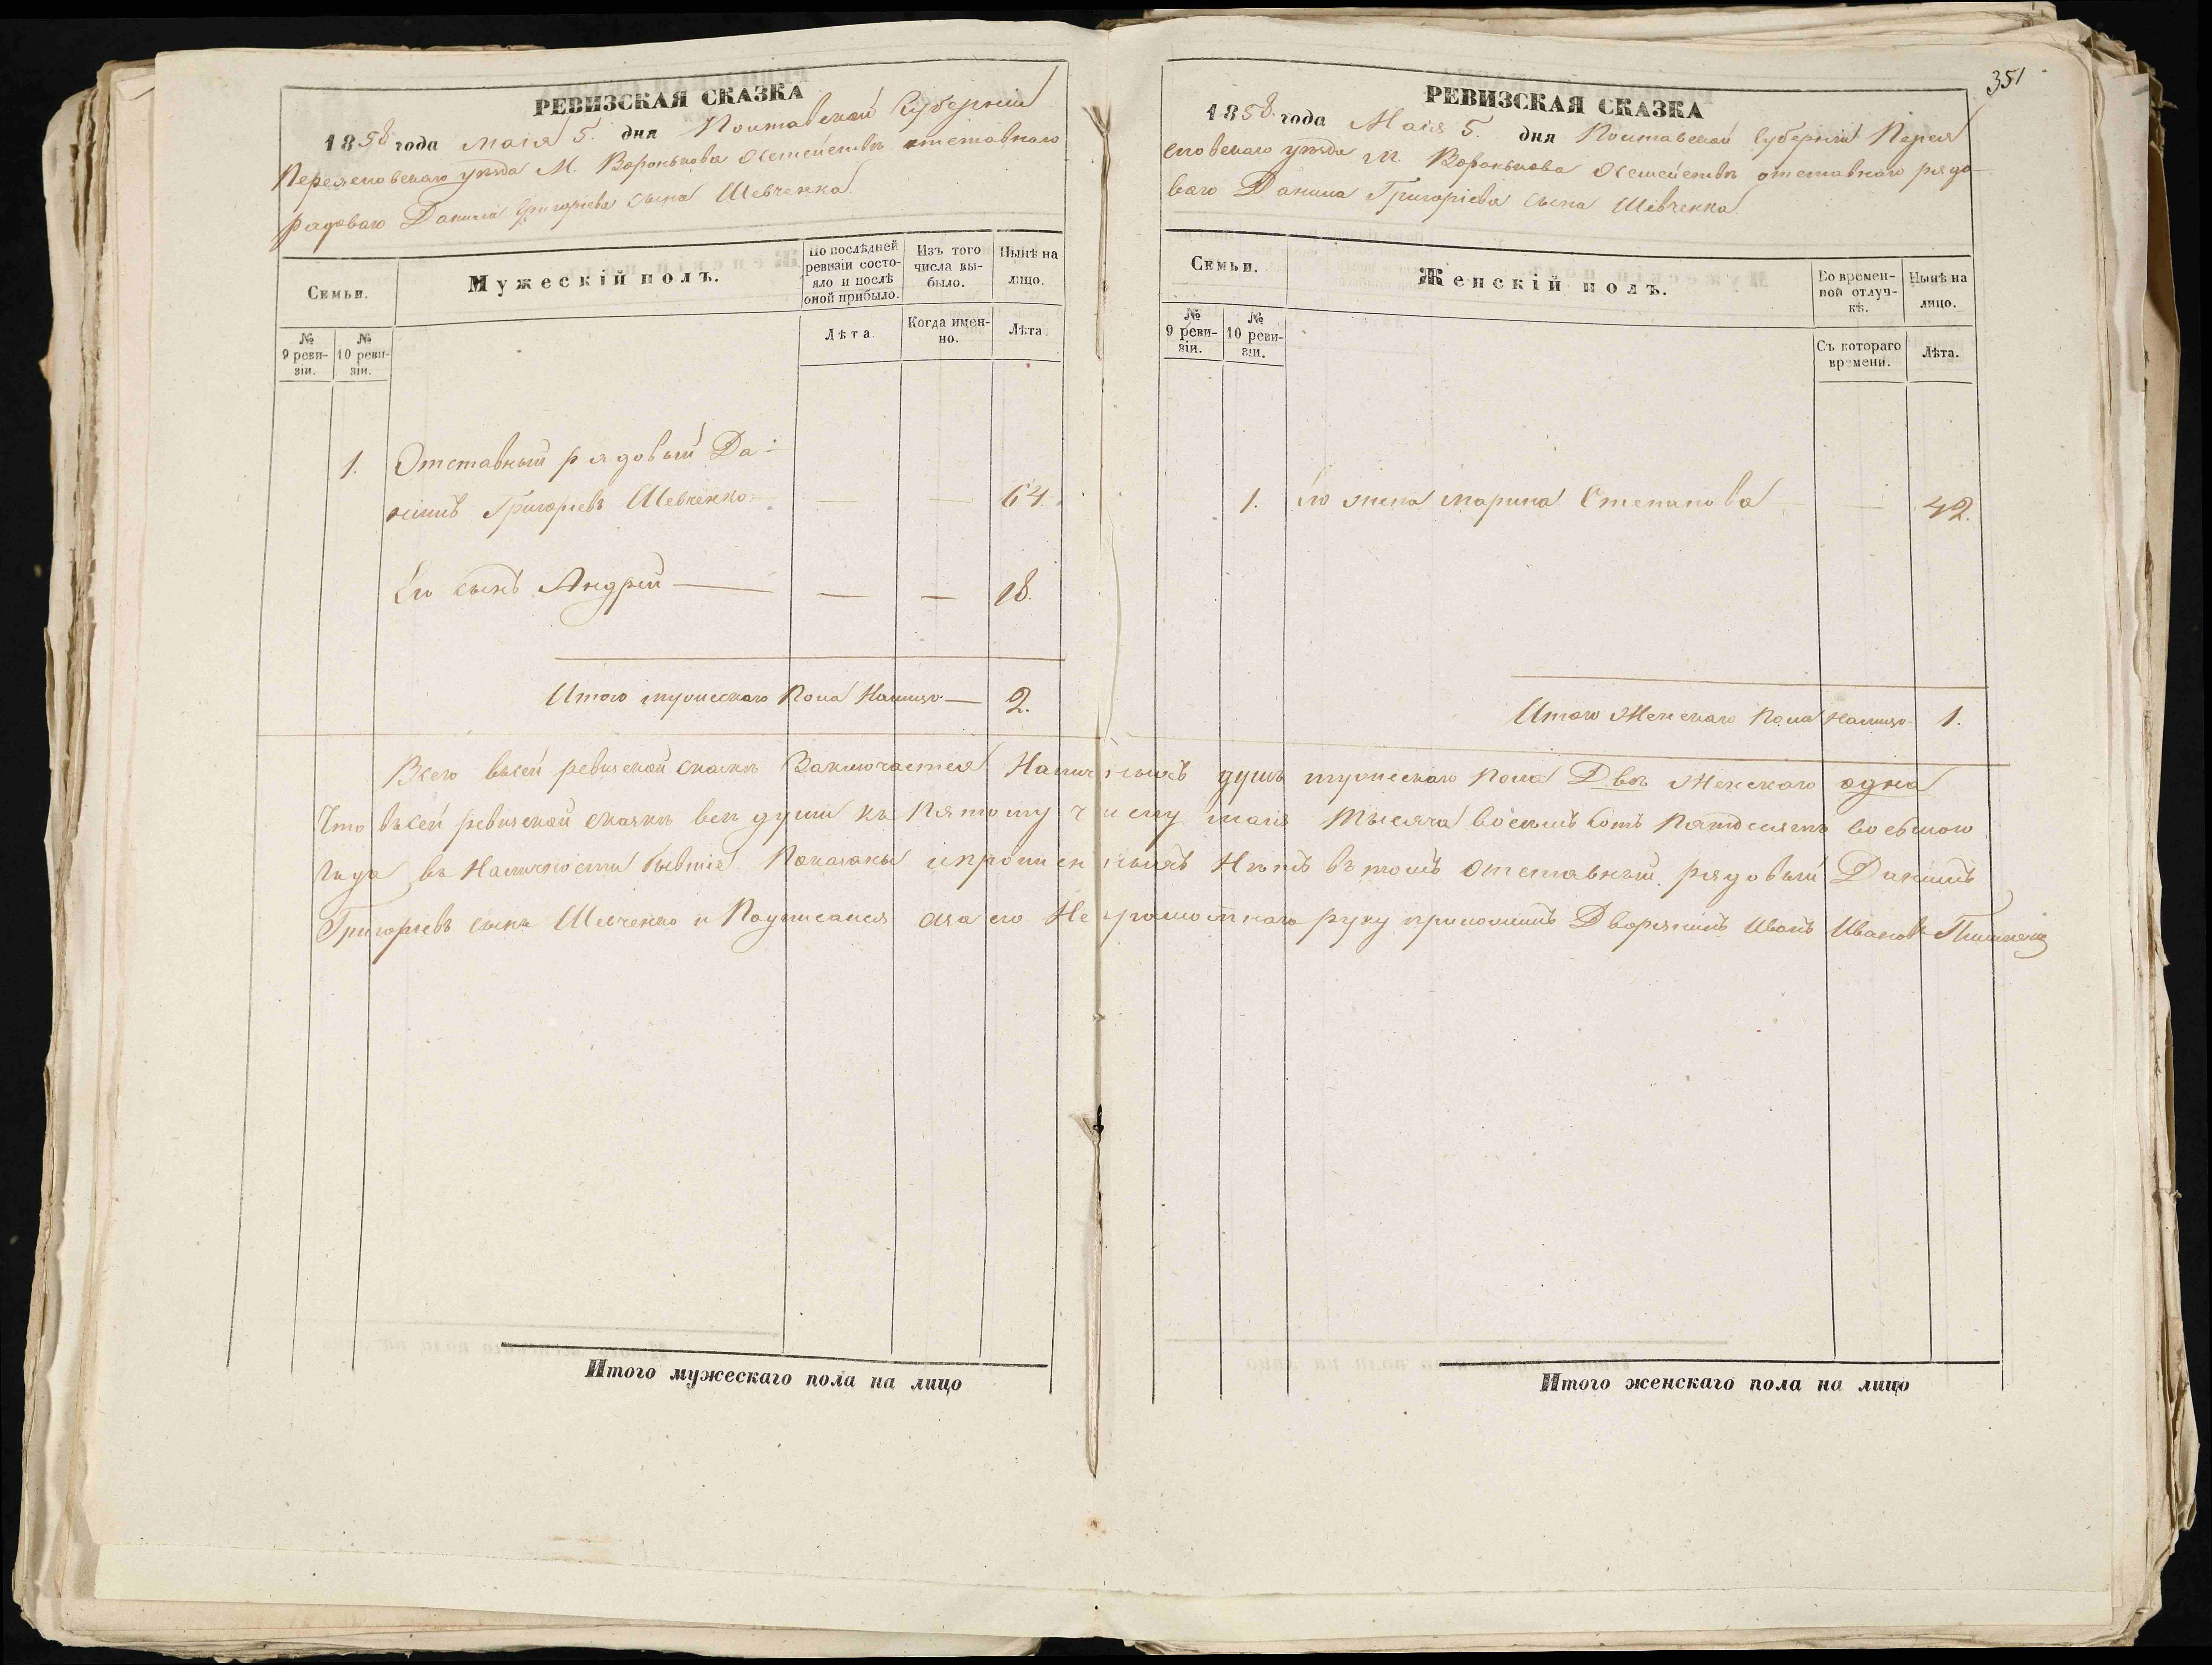 РЕВИЗСКАЯ СКАЗКА
1858 года Маія 5. дня Полтавской Губерніи
Переясловскаго уѣзда М. Воронькова О семействѣ отставнаго
рядоваго Данила Григоріева сына Шевченка
Семьи.
Мужескій полъ.
По послѣдней ревизіи состояло и послѣ оной прибыло.
Изъ того числа выбыло.
Нынѣ на лицо.
№ 9 ревизіи.
№ 10 ревизіи.
Лѣта.
Когда именно.
Лѣта.
1. Отставный рядовый Да-
нилъ Григорьевъ Шевченко — — 64.
Его сынъ Андрей — — — 18.
Итого мужескаго пола Налицо — 2.
351
РЕВИЗСКАЯ СКАЗКА
1858 года Маія 5. дня Полтавской Губерніи Перея
словскаго уѣзда М. Воронькова О семействѣ отставнаго рядо-
ваго Данила Григоріева сына Шевченка
Семьи.
Женскій полъ.
Во временной отлучкѣ.
Нынѣ на лицо.
№ 9 ревизіи.
№ 10 ревизіи.
Съ котораго времени.
Лѣта.
1. Его жена Марина Степанова — — 42.
Итого Женскаго Пола Налицо 1.
Всего въсей ревизской сказкѣ Заключается Наличныхъ душъ мужескаго пола Двѣ Женскаго одна
Что въсей ревизской сказкѣ всѣ души къ Пятому числу маія тысяча восемь сотъ пятдесятъ восьмого
года въ Наличности бывшіе Показаны и пропис ныхъ Нѣтъ въ томъ Отставный рядовый Данилъ
Григорьевъ сынъ Шевченко и Подписался а за его Неграмотнаго руку приложилъ Дворянинъ Иванъ Ивановъ
Итого мужескаго пола на лицо
Итого женскаго пола на лицо